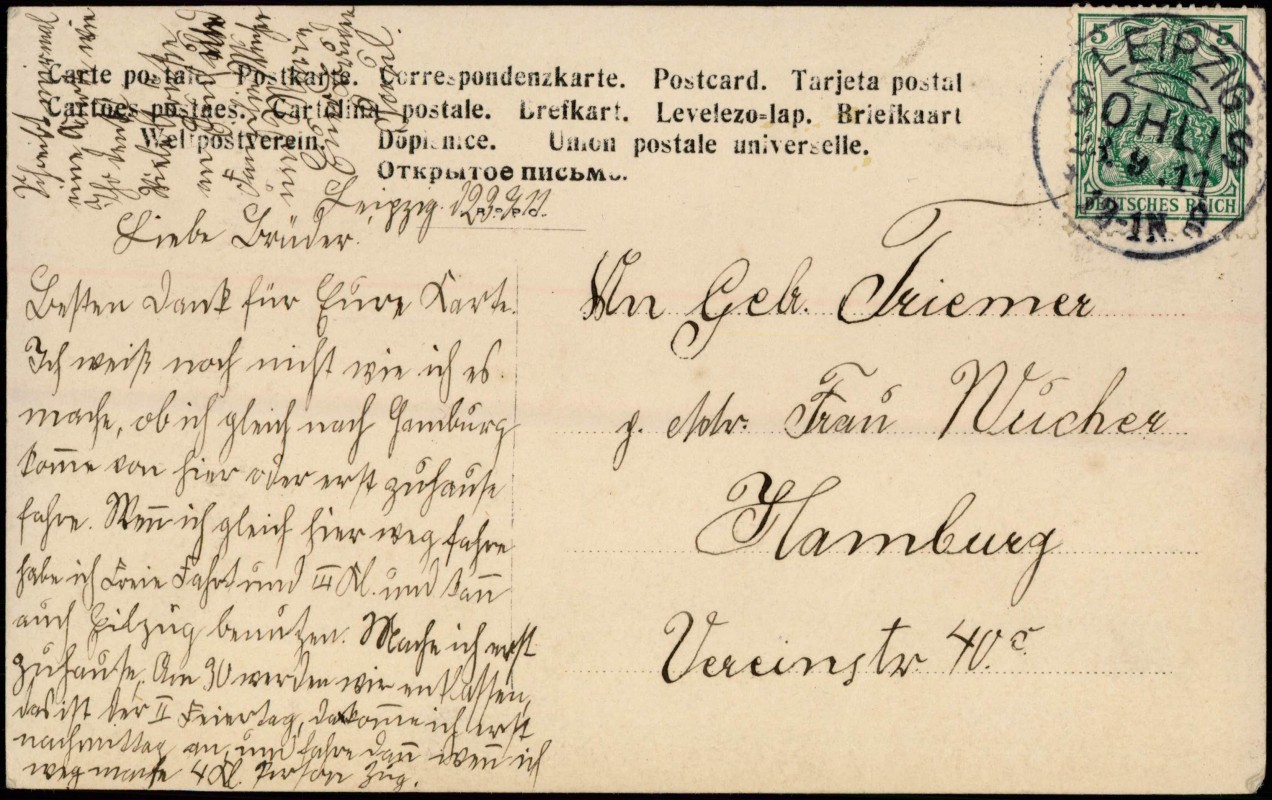 Carte postale. Postkarte. Correspondenzkarte. Postcard. Tarjeta postal
Cartoes-postaes. Cartolina postale. Brefkart. Levelezo=lap. Briefkaart
Weltpostverein. Dopisnice. Union postale universelle.
Открытое письмо.
5 5
DEUTSCHES REICH
LEIPZIG-
GOHLIS
9.11
Leipzig d 23.9.11
Liebe Brüder.
Besten Dank für Eure Karte.
Ich weiß noch nicht wie ich es
mache, ob ich gleich nach Hamburg
komme von hier oder erst zuhause
fahre. Wenn ich gleich hier weg fahre
habe ich Freie Fahrt und III Kl. und kann
auch Eilzug benutzen. Mache ich erst
zuhause. Am 30 werden wir entlassen,
das ist der II Feiertag, da komme ich erst
nachmittag an, und fahre dann wenn ich
weg mache 4 Kl. Person Zug.
Schreibt nochmal
eine Karte wie
Ihr denkt
Viele Grüße
an Euch
Familie Wucher
Euer
Bruder
An Gebr. Triemer
p. Adr. Frau Wucher
Hamburg
Vereinstr 40.c